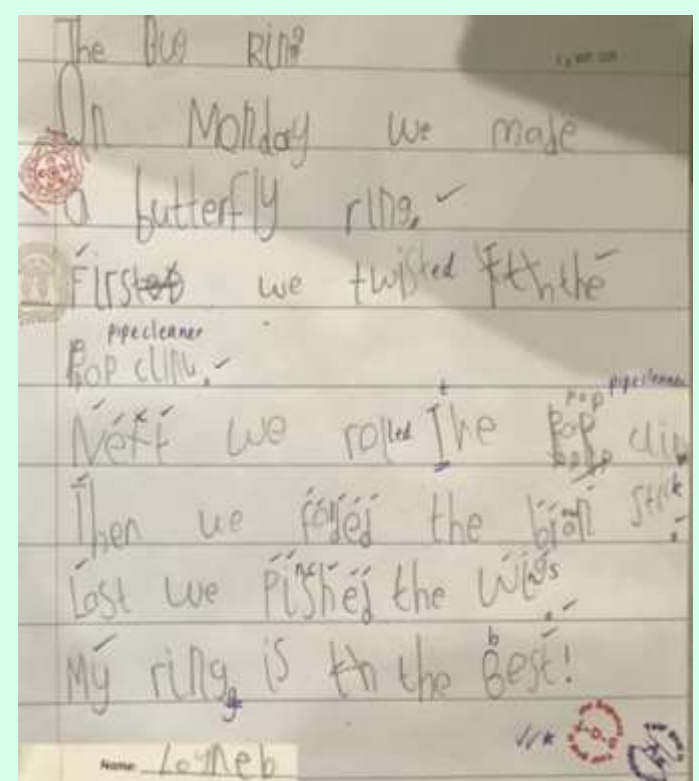 The Bug Ring
On Monday we made
a butterfly ring.
First we twisted the
pipecleaner
Pop clinu.
t
pipecleaner
pop
Next we rolled The Pop clin
Then we folded the brown stick.
Last we Pinched the wings.
b
My ring is th the Best!
Name: